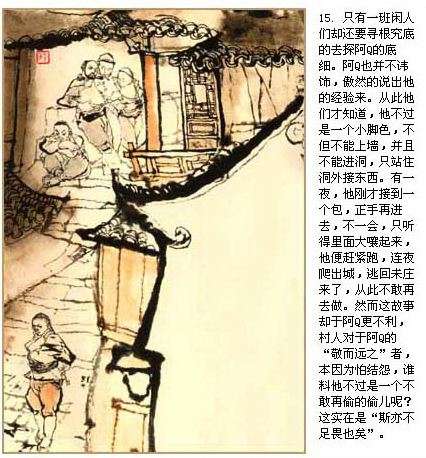 15. 只有一班闲人
们却还要寻根究底
的去探阿Q的底
细。阿Q也并不讳
饰，傲然的说出他
的经验来。从此他
们才知道，他不过
是一个小脚色，不
但不能上墙，并且
不能进洞，只站在
洞外接东西。有一
夜，他刚才接到一
个包，正手再进
去，不一会，只听
得里面大嚷起来，
他便赶紧跑，连夜
爬出城，逃回未庄
来了，从此不敢再
去做。然而这故事
却于阿Q更不利，
村人对于阿Q的
“敬而远之”者，
本因为怕结怨，谁
料他不过是一个不
敢再偷的偷儿呢？
这实在是“斯亦不
足畏也矣”。